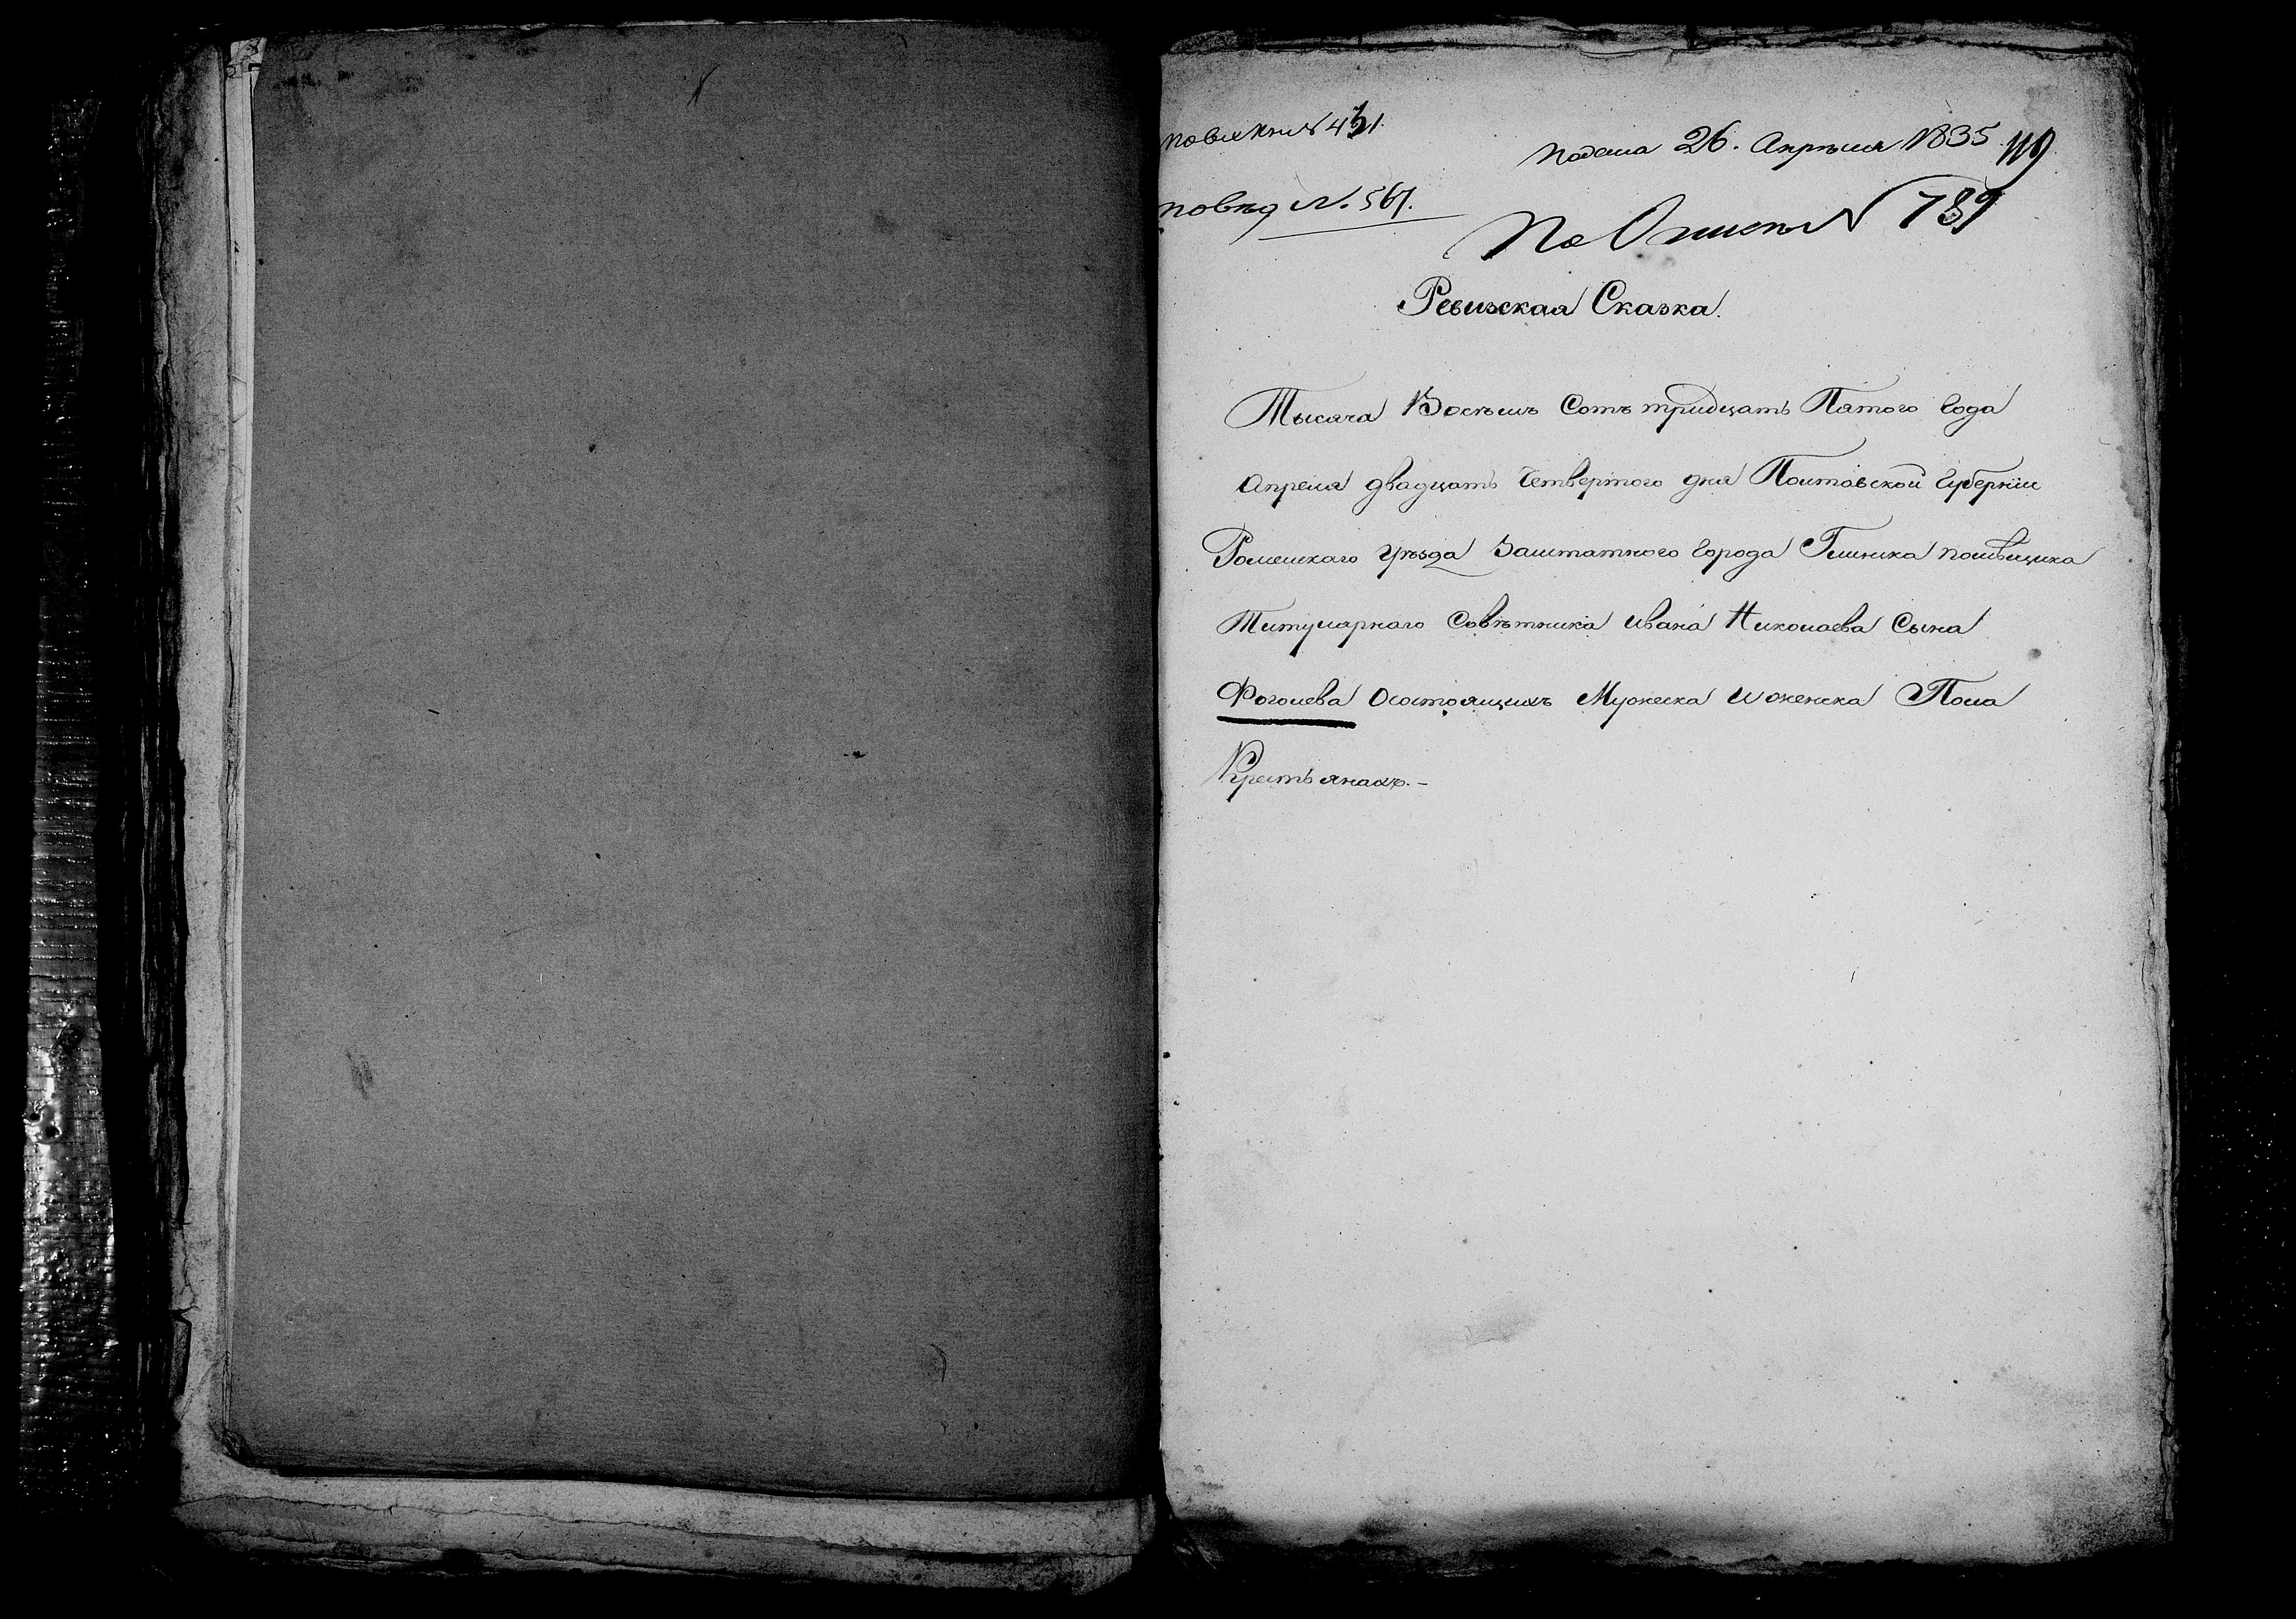 по вх Кни № 431.
подана 26. Апрѣля 1835 119
по вѣд №. 567.
По Описи № 789
Ревизская Сказка.
Тысяча Восѣмъ Сотъ тридцать Пятого Года
Апреля двадцать Четвертого дня Полтавской Губернiи
Роменскаго уѣзда Заштатного Города Глинска помѣщика
Титулярнаго Совѣтника Ивана Николаева Сына
Фоголева Осостоящихъ Мужеска Иженска Пола
Крестьянахъ.-